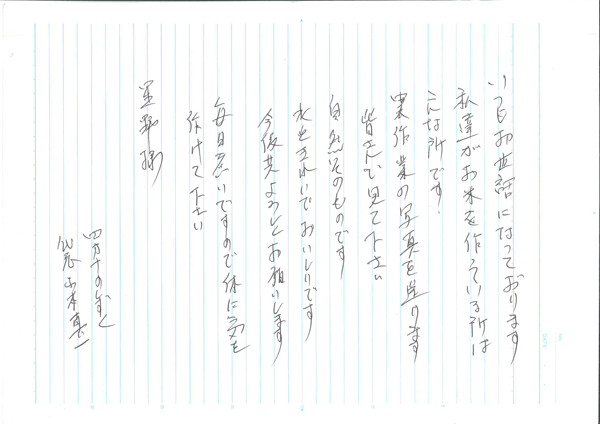 いつもお世話になっております
私達がお米を作っている所は
こんな所です。
農作業の写真を送ります
皆さんで見て下さい
自然そのものです
水もきれいでおいしいです
今後共よろしくお願いします
毎日忙いですので体に気を
付けて下さい
星野様
四万十のしずく
代表 山本真一